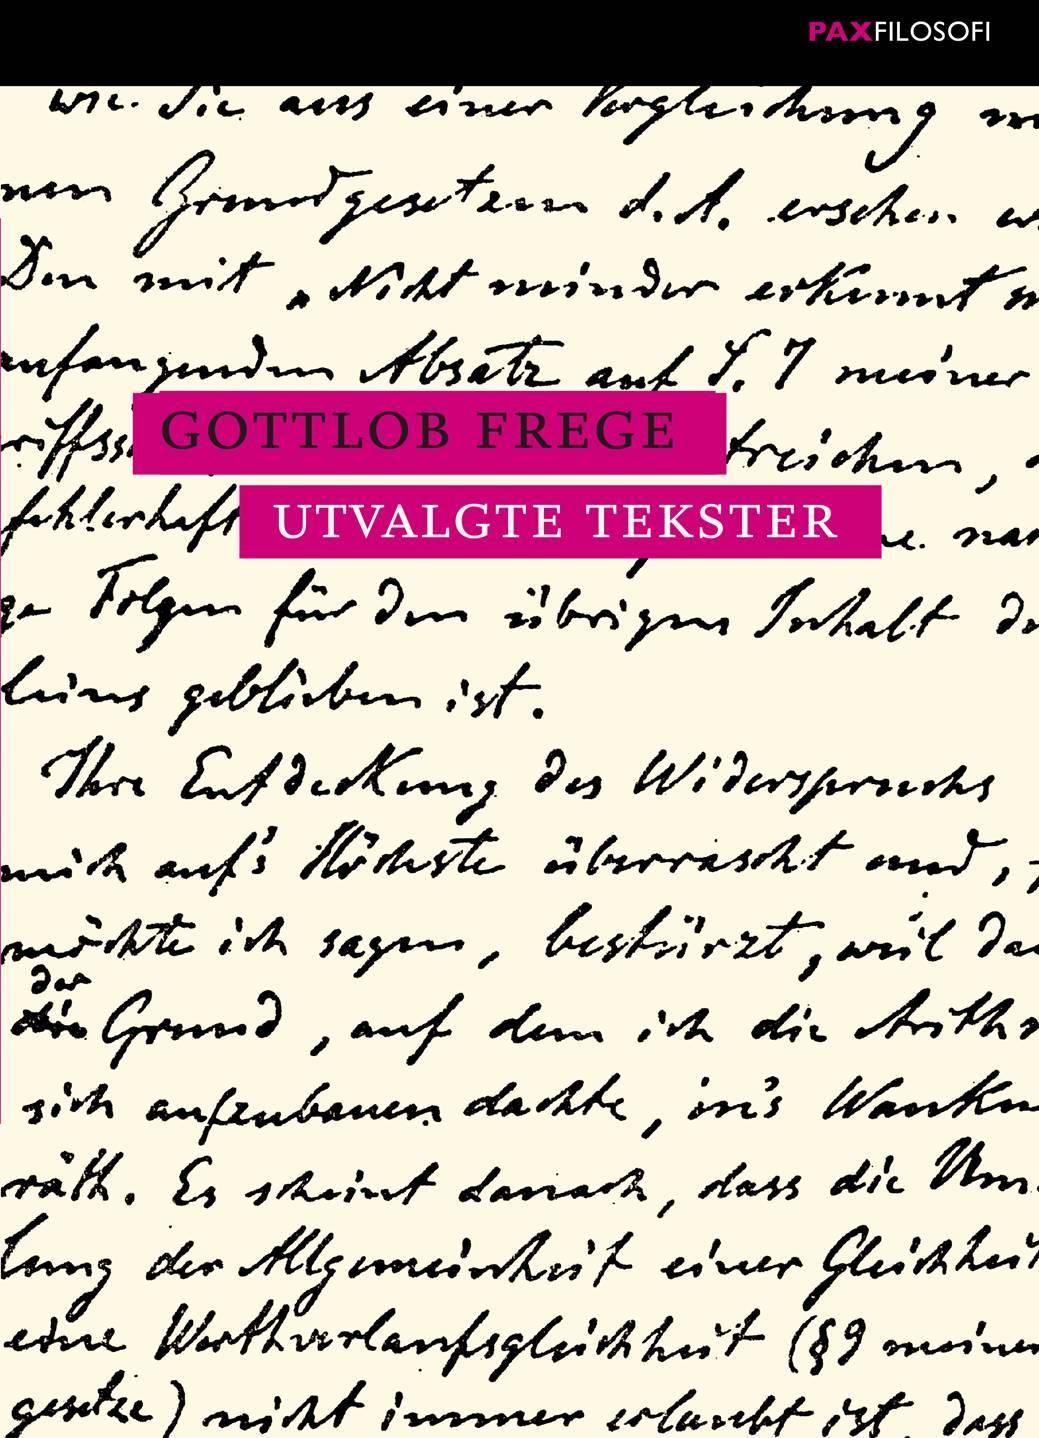 PAXFILOSOFI
wie Sie aus einer Vergleichung
nen Grundgesetzen d. A. ersehen
Den mit „Nicht minder erkennt
anfangenden Absatz auf S. 7 meiner
riffss
GOTTLOB FREGE
treichen,
fehlerhaft
UTVALGTE TEKSTER
ge Folgen für den übrigen Inhalt
leins geblieben ist.
Ihre Entdeckung des Widerspruchs
mich auf's Höchste überrascht und,
möchte ich sagen, bestürzt, weil
der
Grund, auf dem ich die Arithm
sich aufzubauen dachte, in's Wanken
räth. Es scheint danach, dass die Um
lung der Allgemeinheit einer Gleichheit
eine Werthverlaufsgleichheit (§9 meiner
gesetze) nicht immer erlaubt ist, dass